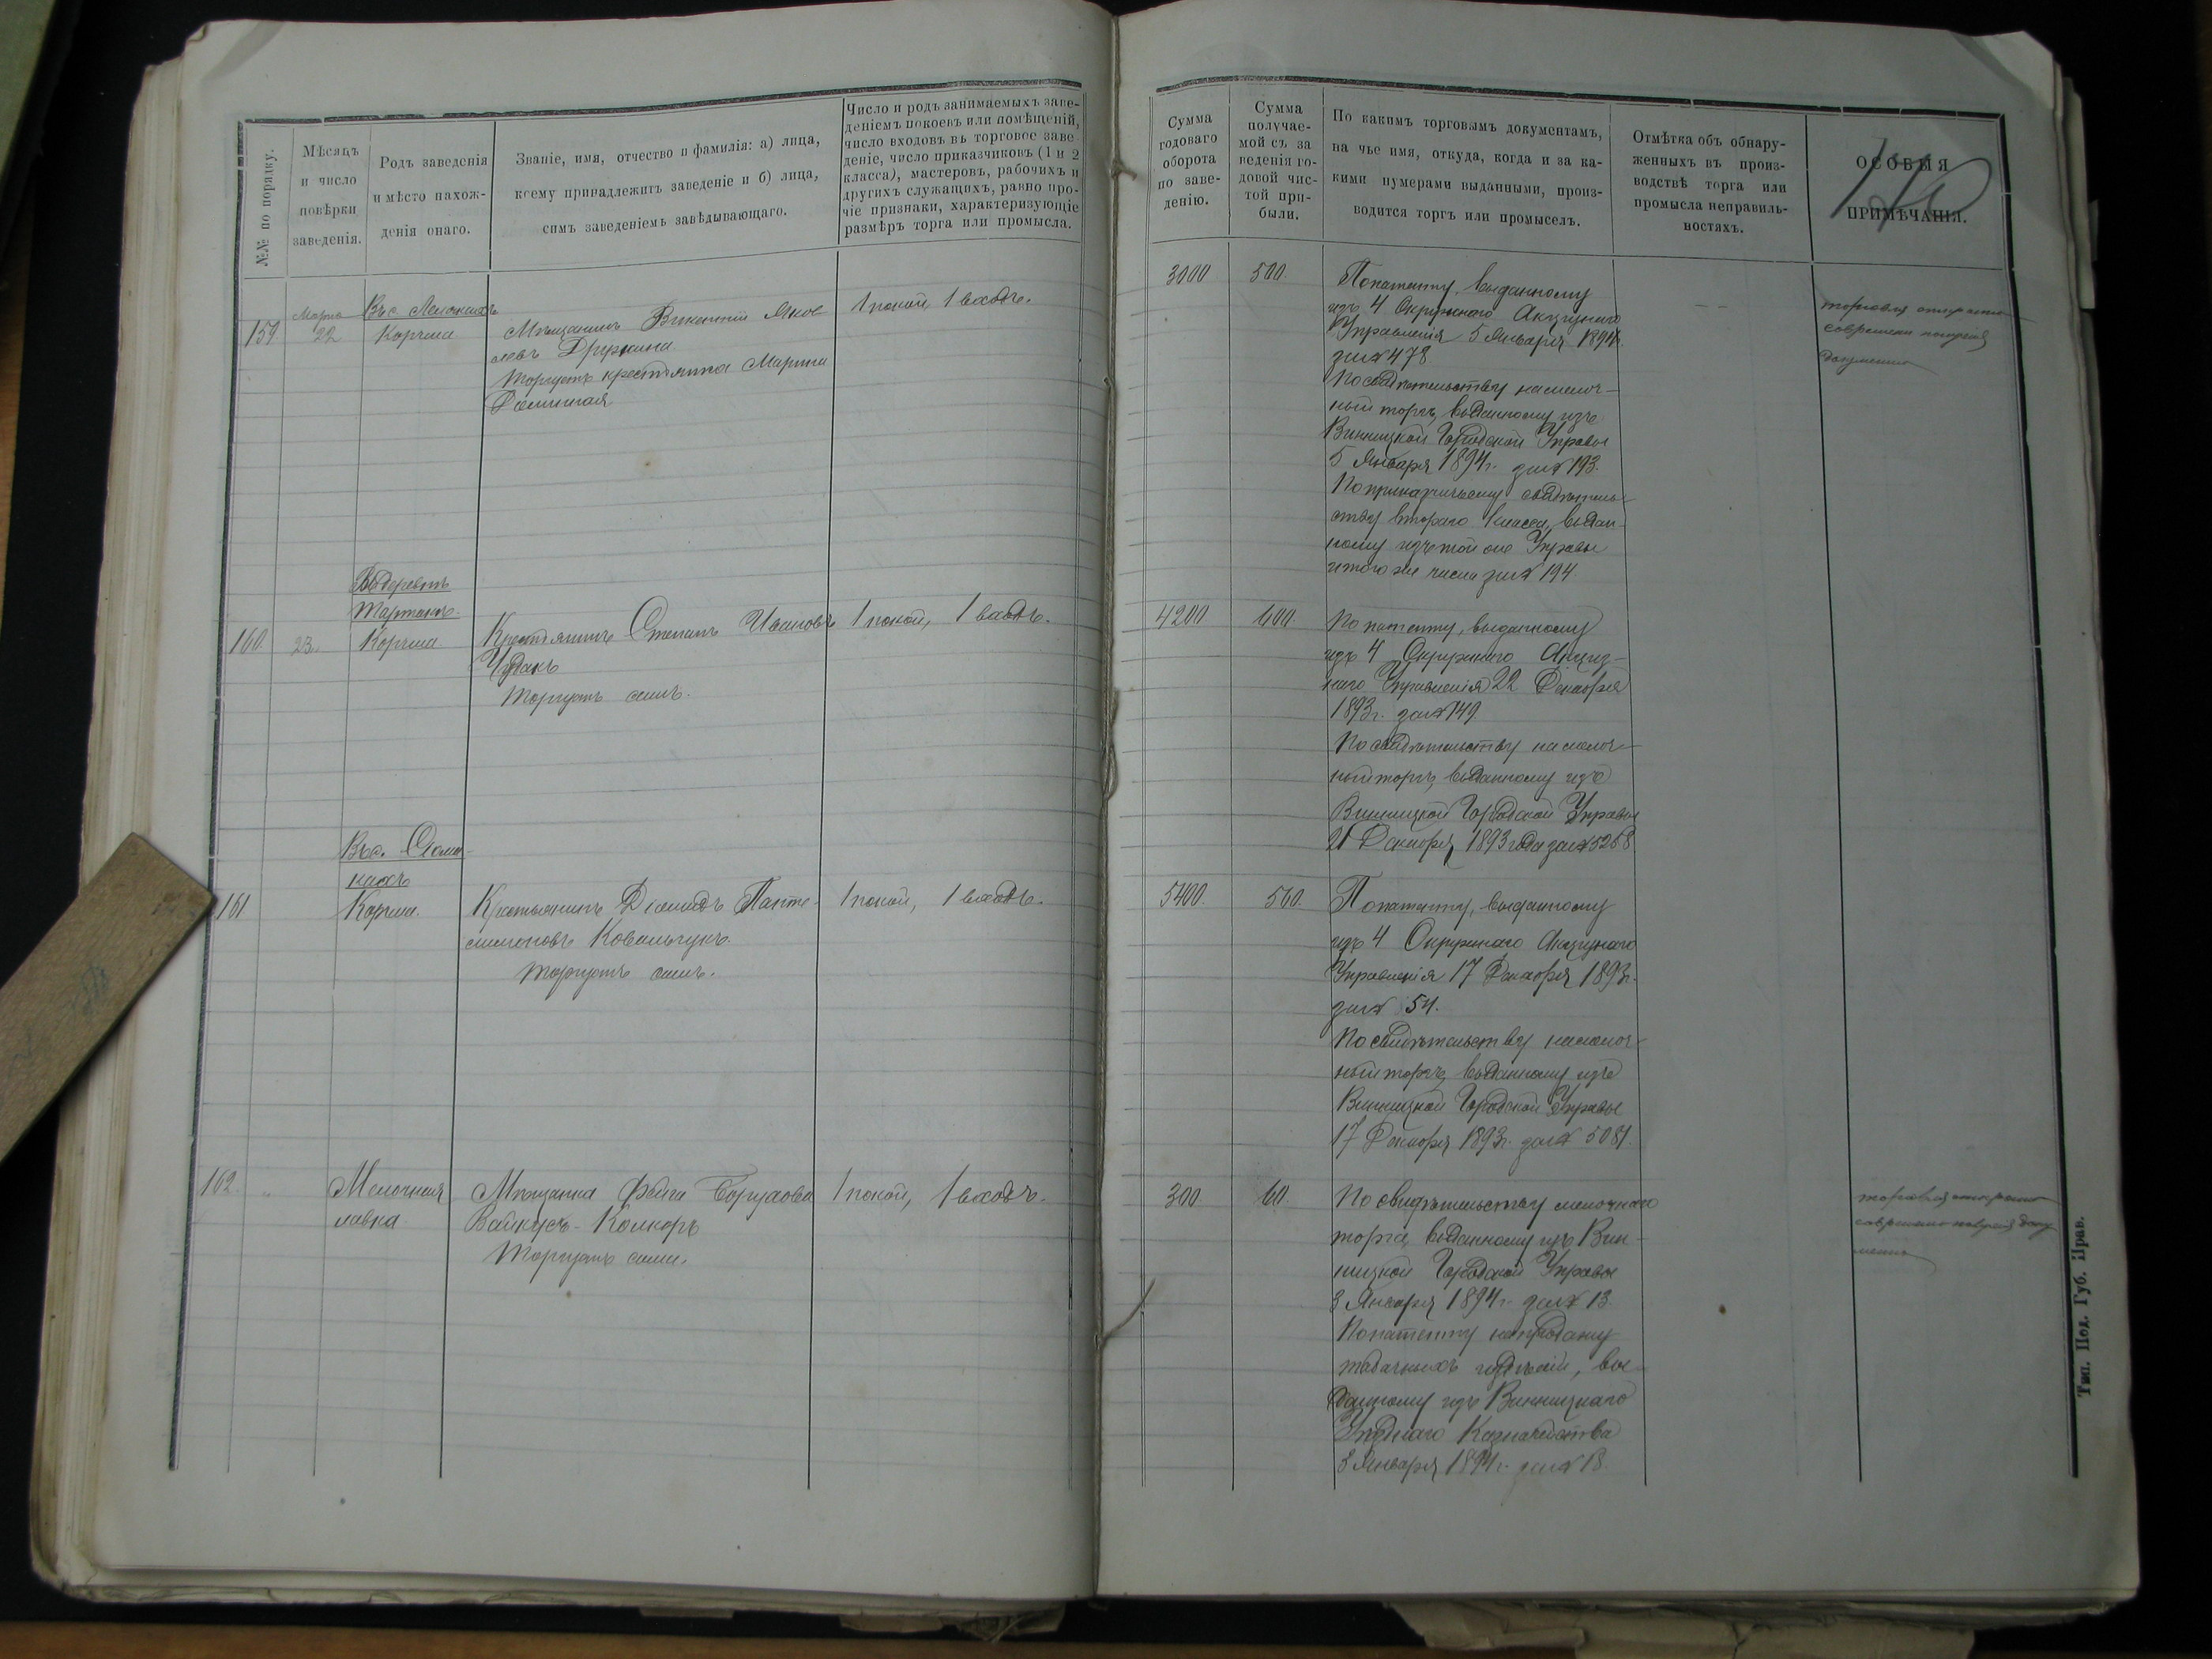 №№ по порядку.
Мѣсяцъ
и число
повѣрки
заведенія.
Родъ заведенія
и мѣсто нахож-
денія онаго.
Званіе, имя, отчество и фамилія: а) лица,
коему принадлежитъ заведеніе и б) лица,
симъ заведеніемъ завѣдывающаго.
Число и родъ занимаемыхъ заве-
деніемъ покоевъ или помѣщеній,
число входовъ въ торговое заве-
деніе, число приказчиковъ (1 и 2
класса), мастеровъ, рабочихъ и
другихъ служащихъ, равно про-
чіе признаки, характеризующіе
размѣръ торга или промысла.
Сумма
годоваго
оборота
по заве-
денію.
Сумма
получае-
мой съ за
веденія го-
довой чис-
той при-
были.
По какимъ торговымъ документамъ,
на чье имя, откуда, когда и за ка-
кими нумерами выданными, произ-
водится торгъ или промыселъ.
Отмѣтка объ обнару-
женныхъ въ произ-
водствѣ торга или
промысла неправиль-
ностяхъ.
ОСОБЫЯ
ПРИМѢЧАНІЯ.
Въ с.
159
Марта
22
Корчма
Мѣщанинъ Викентій Яков
левъ
Торгуетъ крестьянка Марина
1 покой, 1 входъ.
3000
500.
По патенту, выданному
изъ 4 Окружнаго Акцизнаго
Управленія 5 Января 1894г.
за № 478
По свидѣтельству на мелоч-
ный торгъ, выданному изъ
Винницкой Городской Управы
5 Января 1894г. за № 193.
По приказчичьему свидѣтель-
ству втораго класса, выдан-
ному изъ той же Управы
и того же числа за № 194
торговля
документа
Въ деревнѣ
160.
23
Корчма
Крестьянинъ Степанъ Ивановъ
Чудакъ
Торгуетъ самъ.
1 покой, 1 входъ.
4200
600.
По патенту, выданному
изъ 4 Окружнаго Акциз-
наго Управленія 22 Декабря
1893г. за № 149
По свидѣтельству на мелоч-
ный торгъ, выданному изъ
Винницкой Городской Управы
21 Декабря 1893 года за № 5268
Въ с.
161
Корчма.
Крестьянинъ Діомидъ Панте-
лимоновъ Ковальчукъ.
Торгуетъ самъ.
1 покой, 1 входъ.
5400.
560.
По патенту, выданному
изъ 4 Окружнаго Акцизнаго
Управленія 17 Декабря 1893г.
за № 54.
По свидѣтельству на мелоч-
ный торгъ, выданному изъ
Винницкой Городской Управы
17 Декабря 1893г. за № 5081.
162.
"
Мелочная
лавка.
Мѣщанка Фейга Борухова
Торгуетъ сама.
1 покой, 1 входъ.
300.
60.
По свидѣтельству мелочнаго
торга, выданному изъ Вин-
ницкой Городской Управы
3 Января 1894г. за № 13.
По патенту на продажу
табачныхъ издѣлій, вы-
данному изъ Винницкаго
Уѣзднаго Казначейства
3 Января 1894г. за № 18.
торговля
Тип. Под. Губ. Прав.